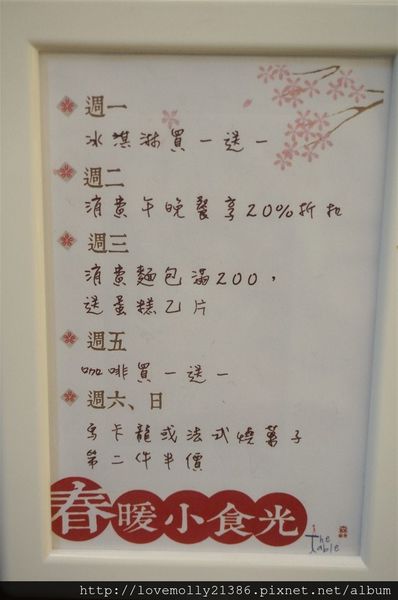 週一
冰淇淋買一送一
週二
消費午晚餐享20%折扣
週三
消費麵包滿200，
送蛋糕乙片
週五
咖啡買一送一
週六、日
馬卡龍或法式燒菓子
第二件半價
春暖小食光
The Table
http://lovemolly21386.pixnet.net/album